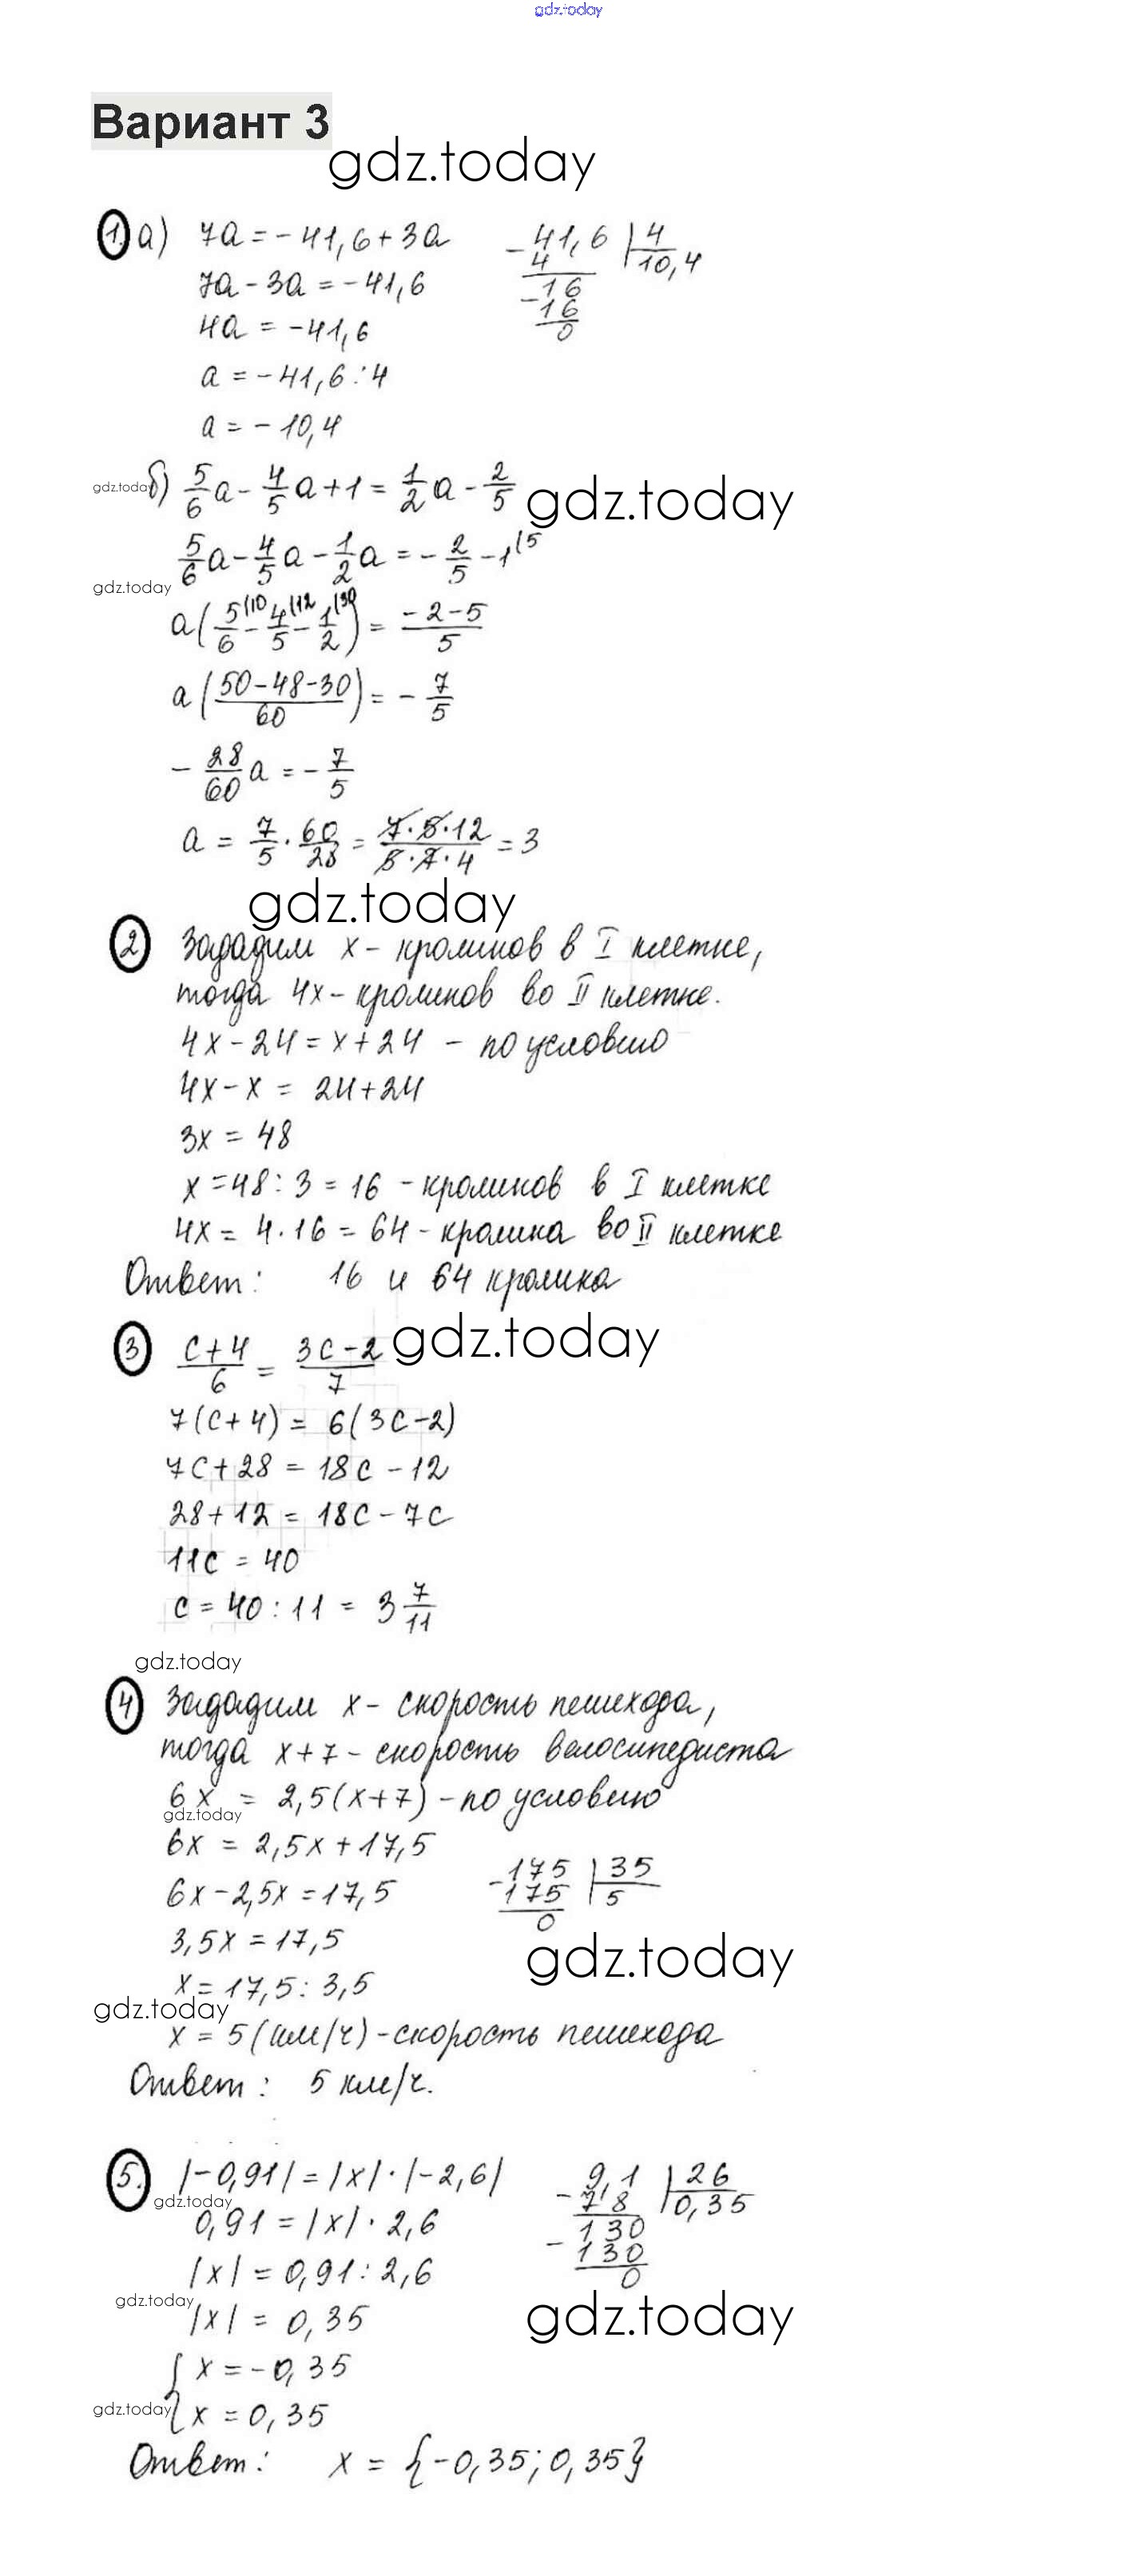 gdz.today
Вариант 3
gdz.today
1. а) 7a = - 41,6 + 3a
- 41,6 | 4
4 10,4
7a - 3a = - 41,6
- 16
16
0
4a = - 41,6
a = - 41,6 : 4
a = - 10,4
gdz.today
б) 5/6 a - 4/5 a + 1 = 1/2 a - 2/5
gdz.today
5/6 a - 4/5 a - 1/2 a = - 2/5 - 1(5
gdz.today
a( 5(10/6 - 4(12/5 - 1(30/2 ) = -2-5/5
a( 50-48-30/60 ) = - 7/5
- 28/60 a = - 7/5
a = 7/5 · 60/28 = 7·5·12/5·7·4 = 3
gdz.today
2 Зададим x - кроликов в I клетке,
тогда 4x - кроликов во II клетке.
4x - 24 = x + 24 - по условию
4x - x = 24 + 24
3x = 48
x = 48 : 3 = 16 - кроликов в I клетке
4x = 4 · 16 = 64 - кролика во II клетке
Ответ: 16 и 64 кролика
3 c+4/6 = 3c-2/7
gdz.today
7(c+4) = 6(3c-2)
7c + 28 = 18c - 12
28 + 12 = 18c - 7c
11c = 40
c = 40 : 11 = 3 7/11
gdz.today
4 Зададим x - скорость пешехода,
тогда x + 7 - скорость велосипедиста
6x = 2,5(x+7) - по условию
gdz.today
6x = 2,5x + 17,5
- 175 | 35
175 5
0
6x - 2,5x = 17,5
3,5x = 17,5
gdz.today
x = 17,5 : 3,5
gdz.today
x = 5 (км/ч) - скорость пешехода
Ответ: 5 км/ч.
5. |-0,91| = |x| · |-2,6|
- 9,1 | 26
7 8 0,35
gdz.today
0,91 = |x| · 2,6
- 130
130
0
|x| = 0,91 : 2,6
gdz.today
|x| = 0,35
gdz.today
{ x = - 0,35
gdz.today
x = 0,35
Ответ: x = {-0,35; 0,35}